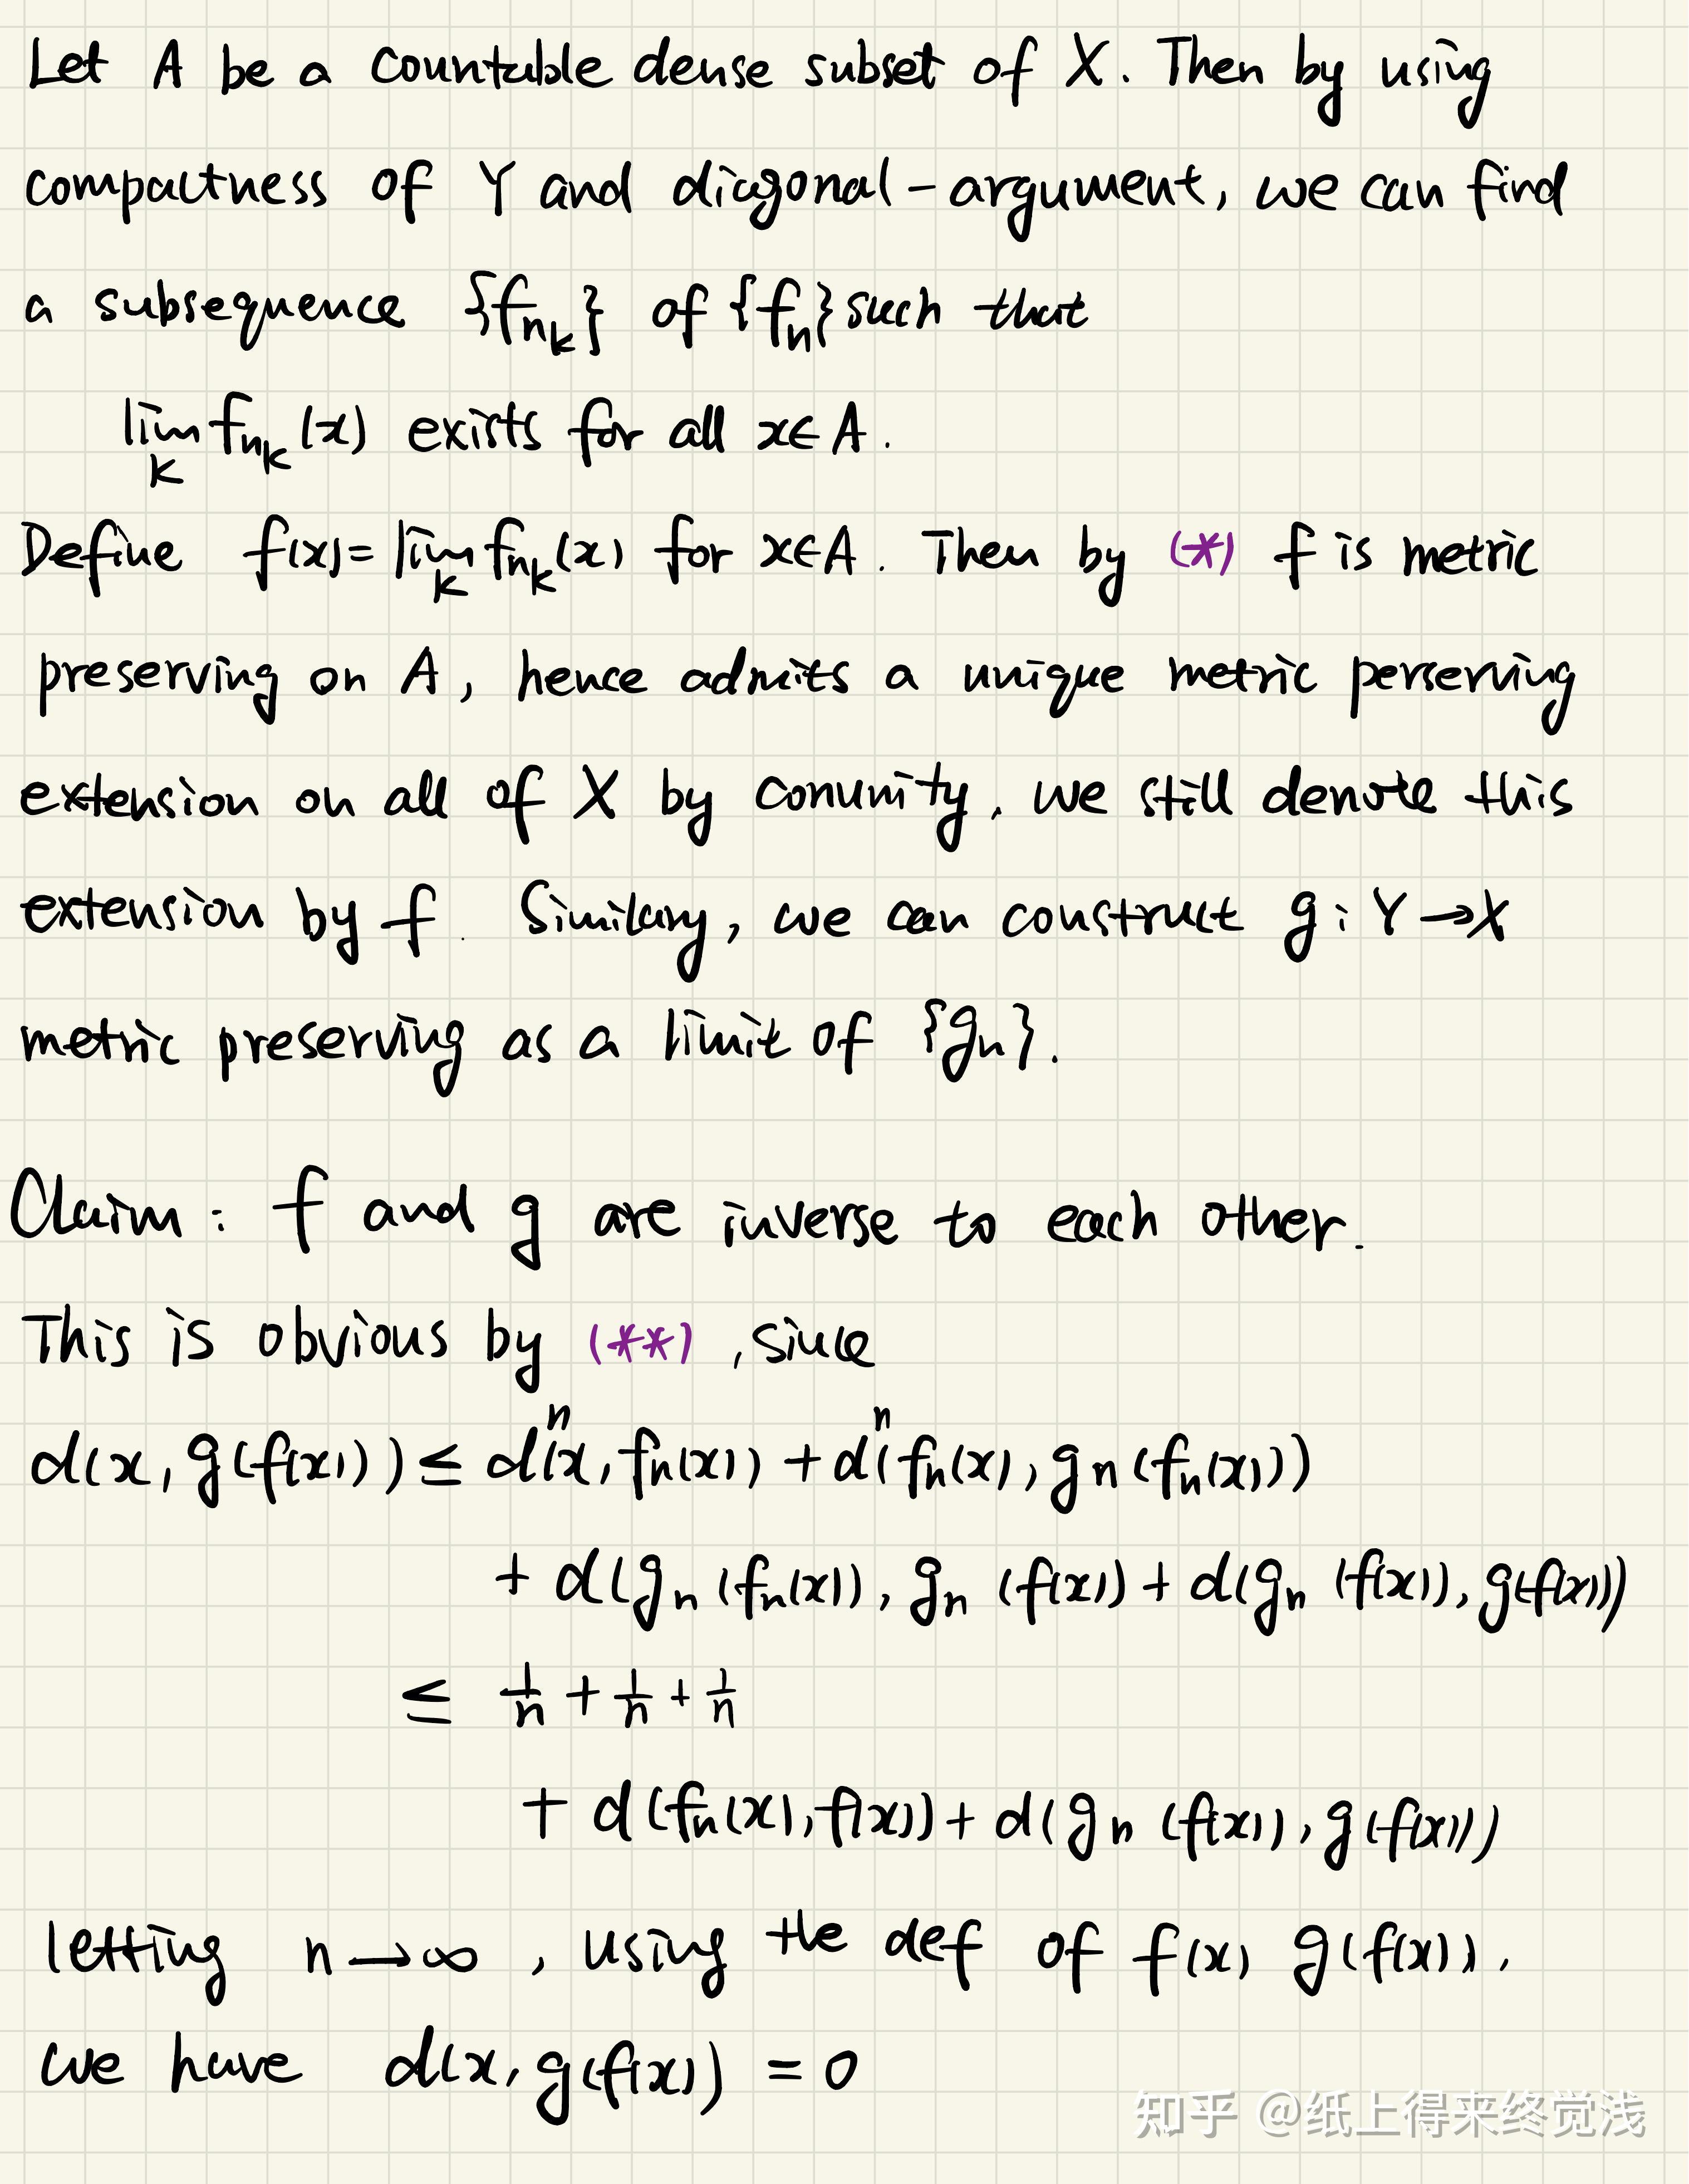 Let A be a countable dense subset of X. Then by using
compactness of Y and diagonal-argument, we can find
a subsequence {f_{n_k}} of {f_n} such that
lim_k f_{n_k}(x) exists for all x∈A.
Define f(x)=lim_k f_{n_k}(x) for x∈A. Then by (*) f is metric
preserving on A, hence admits a unique metric perserving
extension on all of X by conunity. we still denote this
extension by f. Similary, we can construct g: Y→X
metric preserving as a limit of {g_n}.
Claim: f and g are inverse to each other.
This is obvious by (**), since
d(x, g(f(x))) ≤ d^n(x, f_n(x)) + d^n(f_n(x), g_n(f_n(x)))
+ d(g_n(f_n(x)), g_n(f(x)) + d(g_n(f(x)), g(f(x)))
≤ 1/n + 1/n + 1/n
+ d(f_n(x), f(x)) + d(g_n(f(x)), g(f(x)))
letting n→∞, using the def of f(x), g(f(x)).
we have d(x, g(f(x)) = 0
知乎 @纸上得来终觉浅